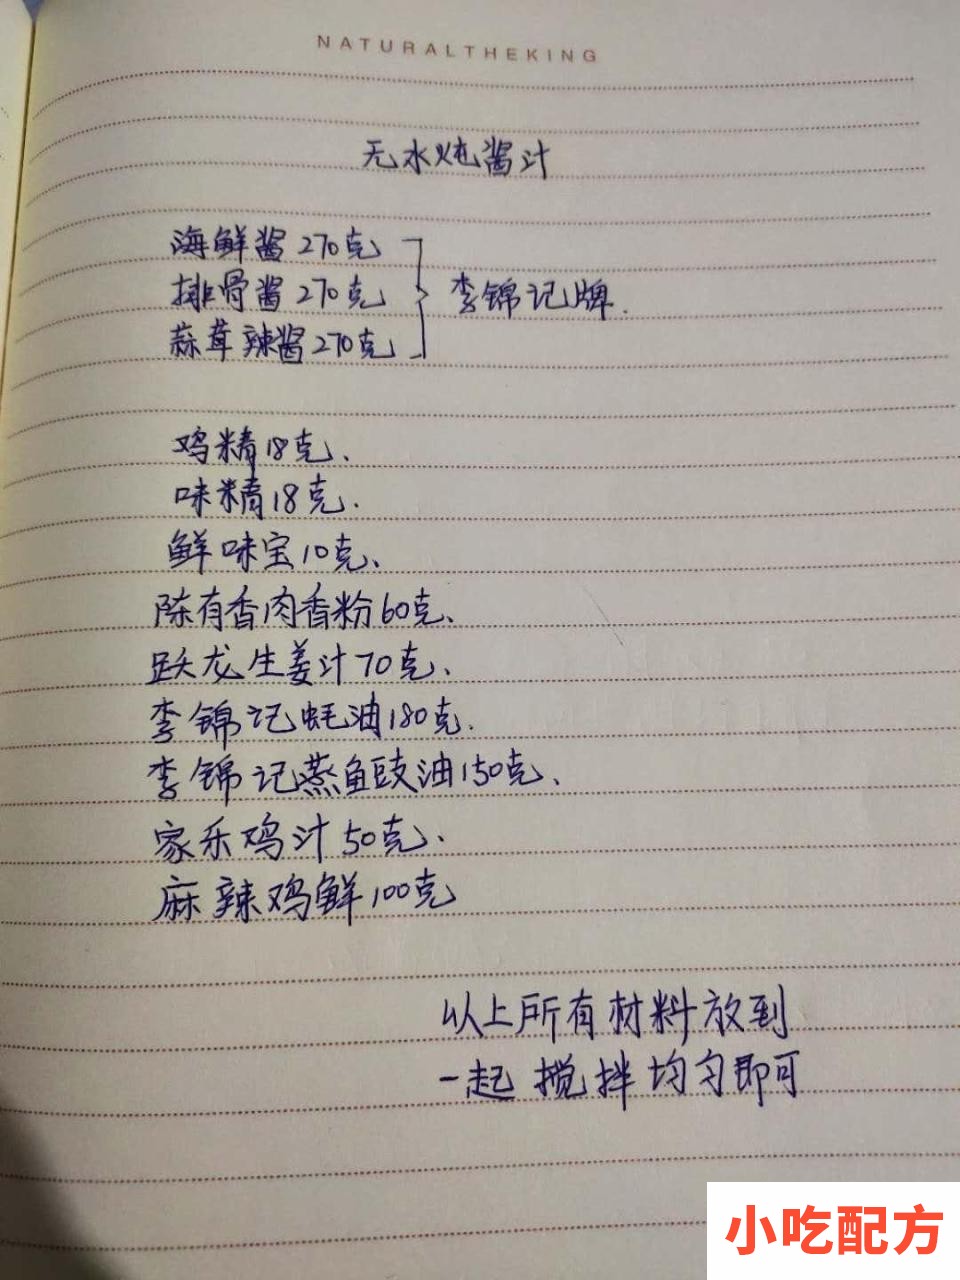 NATURALTHEKING
无水炖酱汁
海鲜酱270克
排骨酱270克 李锦记牌.
蒜茸辣酱270克
鸡精18克、
味精18克.
鲜味宝10克、
陈有香肉香粉60克、
跃龙生姜汁70克、
李锦记蚝油180克.
李锦记蒸鱼豉油150克、
家乐鸡汁50克、
麻辣鸡鲜100克
以上所有材料放到
一起搅拌均匀即可
小吃配方